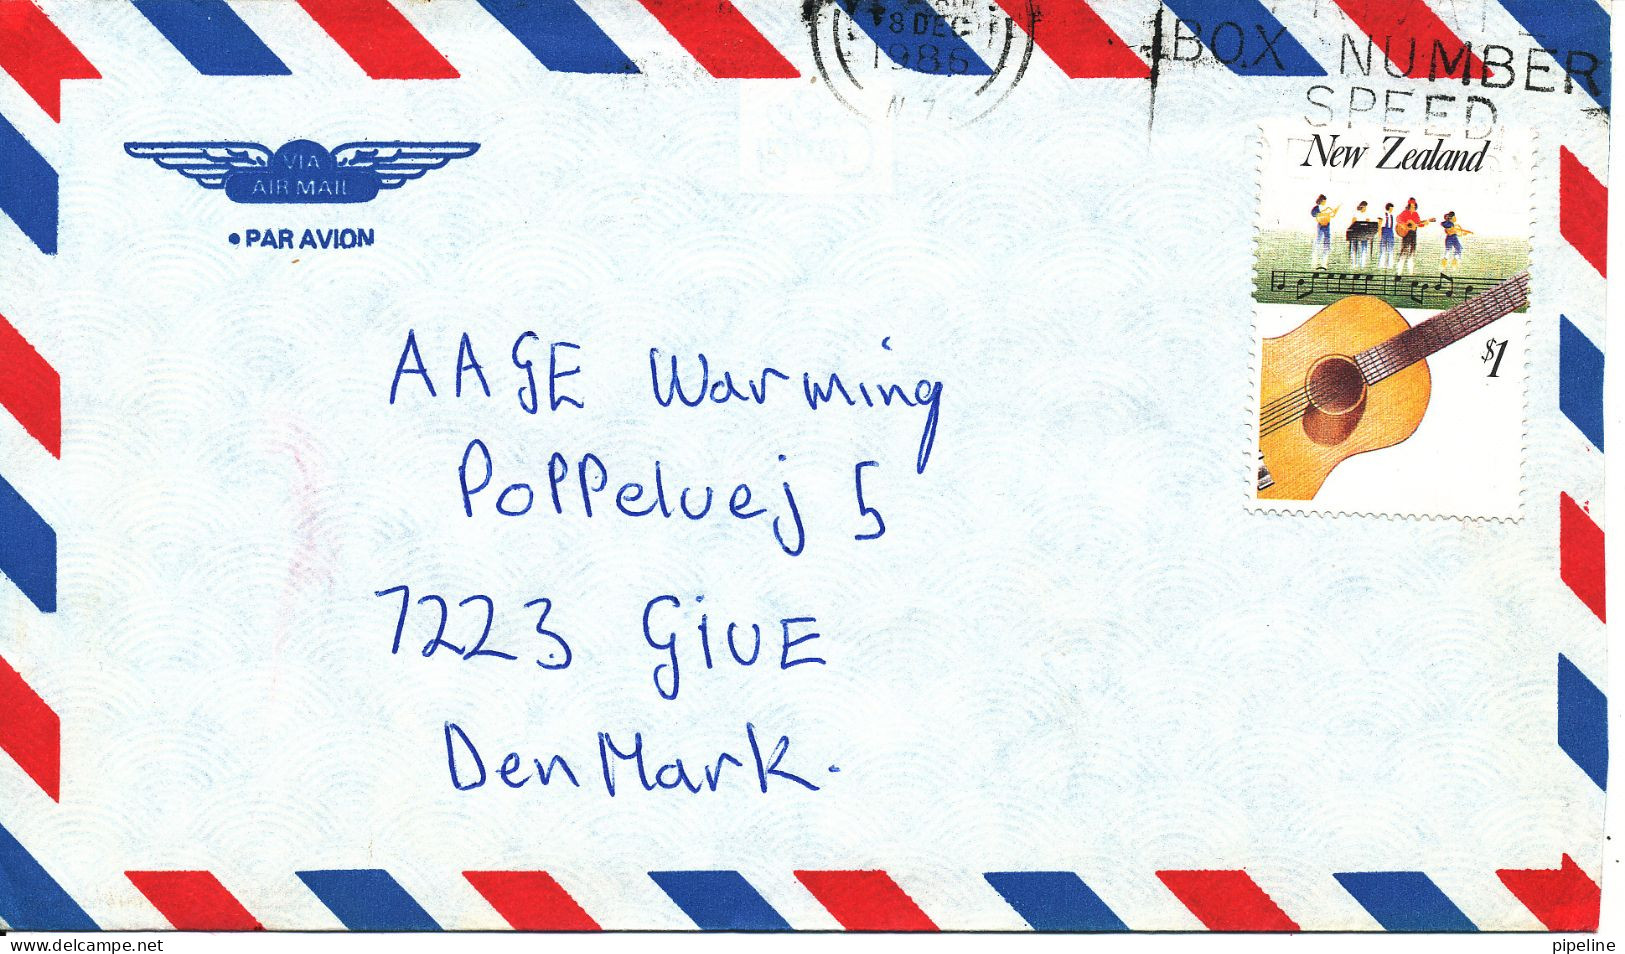 8 DEC
1986
N.Z.
BOX NUMBER
SPEED
VIA
AIR MAIL
• PAR AVION
New Zealand
$1
AAGE Warming
Poppelvej 5
7223 GIVE
DenMark.
delcampe.net
pipeline